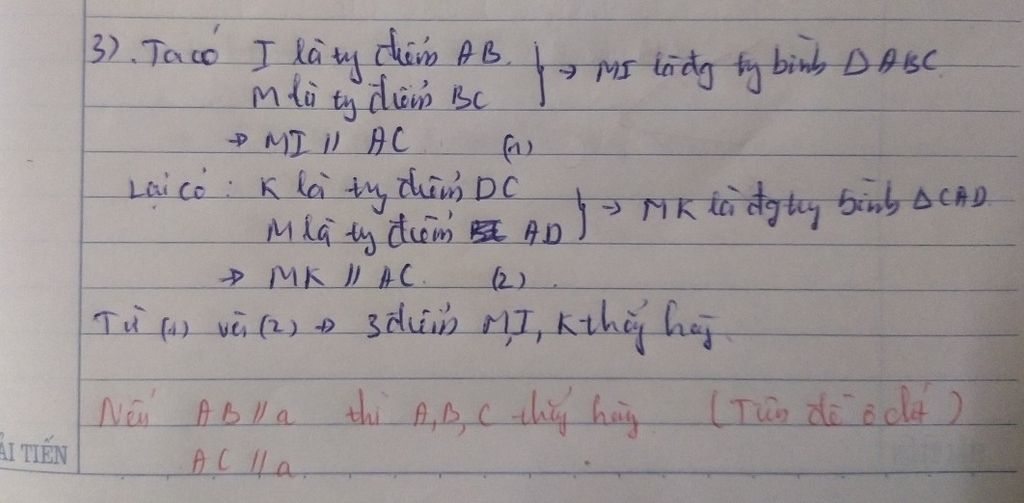 3). Ta có I là tg điểm AB. } → MI là đg tg bình Δ ABC
M là tg điểm BC
→ MI // AC (1)
Lại có: K là tg điểm DC } → MK là đg tg bình Δ CAD
M là tg điểm AD
→ MK // AC. (2).
Từ (1) và (2) → 3 điểm M, I, K thẳng hàng.
Nếu AB // a thì A, B, C thẳng hàng (Tiên đề Ơ clit)
AC // a
ẢI TIẾN